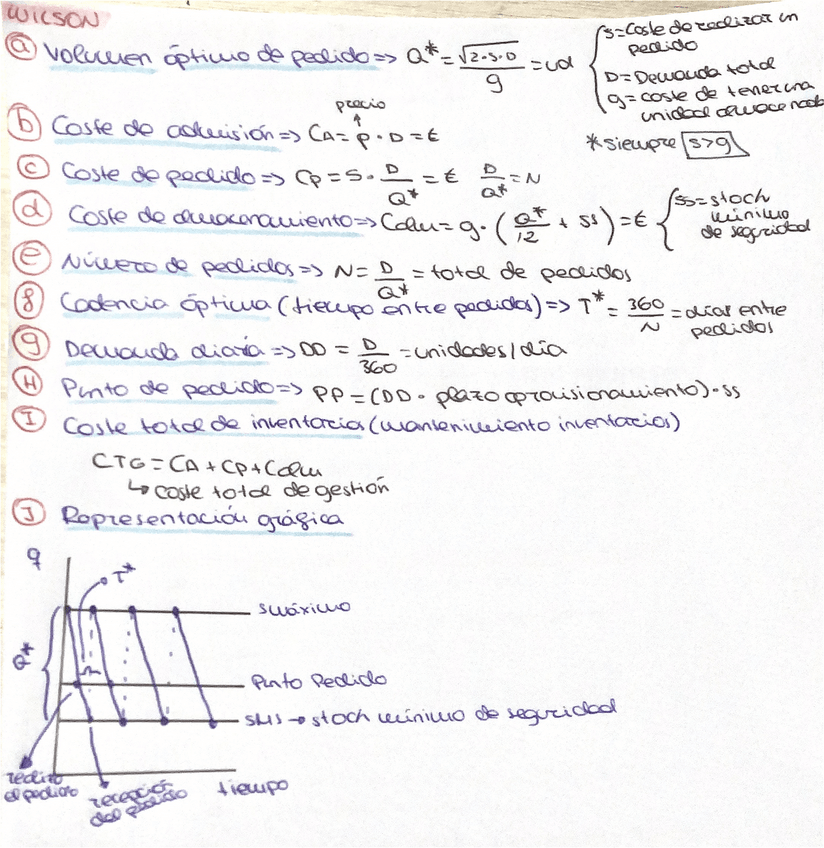 WILSON
a Volumen óptimo de pedido => Q* = √2·S·D / g = ud
S = Coste de realizar un pedido
D = Demanda total
g = coste de tener una unidad almacenada
* siempre S>g
precio
b Coste de adquisición => CA = p · D = €
c Coste de pedido => Cp = S · D/Q* = € D/Q* = N
d Coste de almacenamiento => Calm = g · (Q*/12 + ss) = €
ss = stoch mínimo de seguridad
e Número de pedidos => N = D/Q* = total de pedidos
f Cadencia óptima (tiempo entre pedidos) => T* = 360/N = días entre pedidos
g Demanda diaria => DD = D/360 = unidades/día
H Punto de pedido => PP = (DD · plazo aprovisionamiento) · ss
I Coste total de inventarios (mantenimiento inventarios)
CTG = CA + Cp + Calm
↳ coste total de gestión
J Representación gráfica
q
T*
Smáximo
Q*
Punto Pedido
SMS → stoch mínimo de seguridad
realizo el pedido
recepción del pedido
tiempo